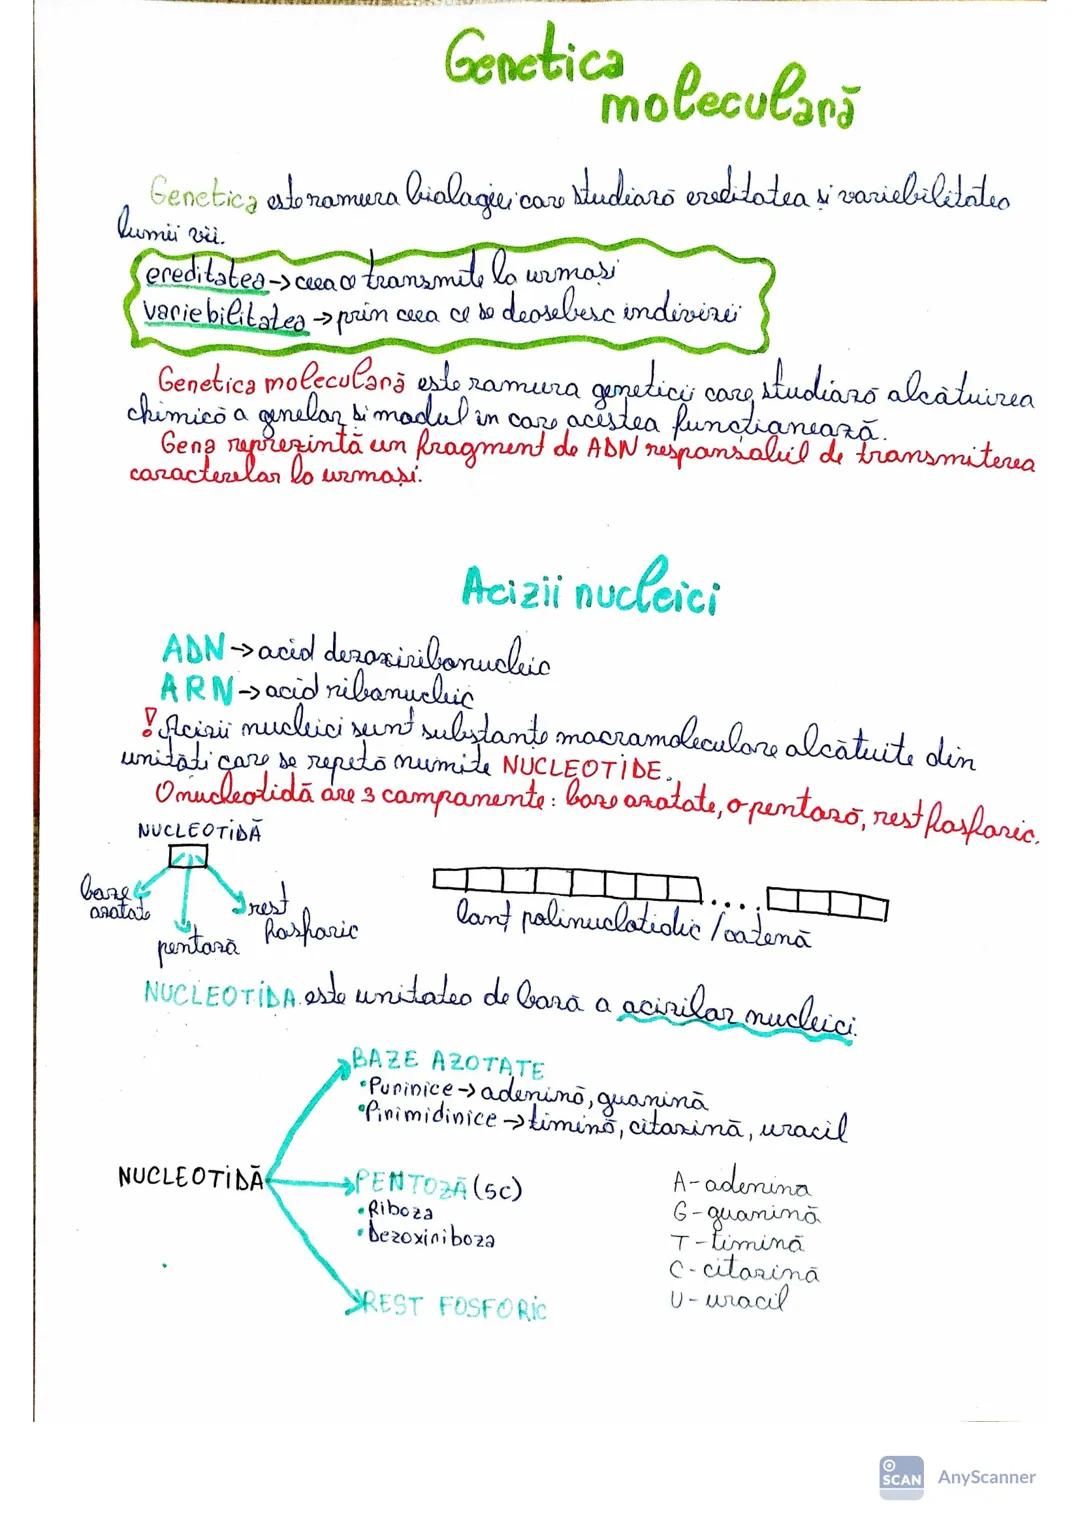 Genetica
moleculară
Genetica este ramura biologiei care studiază ereditatea și variebilitatea
lumii vii.
ereditatea → ceea ce transmite la urmași
variebilitatea → prin ceea ce se deosebesc indivizii
Genetica moleculară este ramura geneticii care studiază alcătuirea
chimică a genelor și modul în care acestea funcționează.
Gena reprezintă un fragment de ADN responsabil de transmiterea
caracterelor la urmași.
Acizii nucleici
ADN → acid dezoxiribonucleic
ARN → acid ribonucleic
! Acizii nucleici sunt substanțe macromoleculare alcătuite din
unități care se repetă numite NUCLEOTIDE.
O nucleotidă are 3 componente: baze azotate, o pentoză, rest fosforic.
NUCLEOTIDĂ
baze azotate
pentoză
rest fosforic
....
lanț polinuclotidic / catenă
NUCLEOTIDA este unitatea de bază a acizilor nucleici.
BAZE AZOTATE
• Purinice → adenină, guanină
• Pirimidinice → timină, citozină, uracil
NUCLEOTIDĂ
PENTOZĂ (5C)
• Riboza
• Dezoxiriboza
REST FOSFORIC
A - adenina
G - guanină
T - timină
C - citozină
U - uracil
SCAN AnyScanner